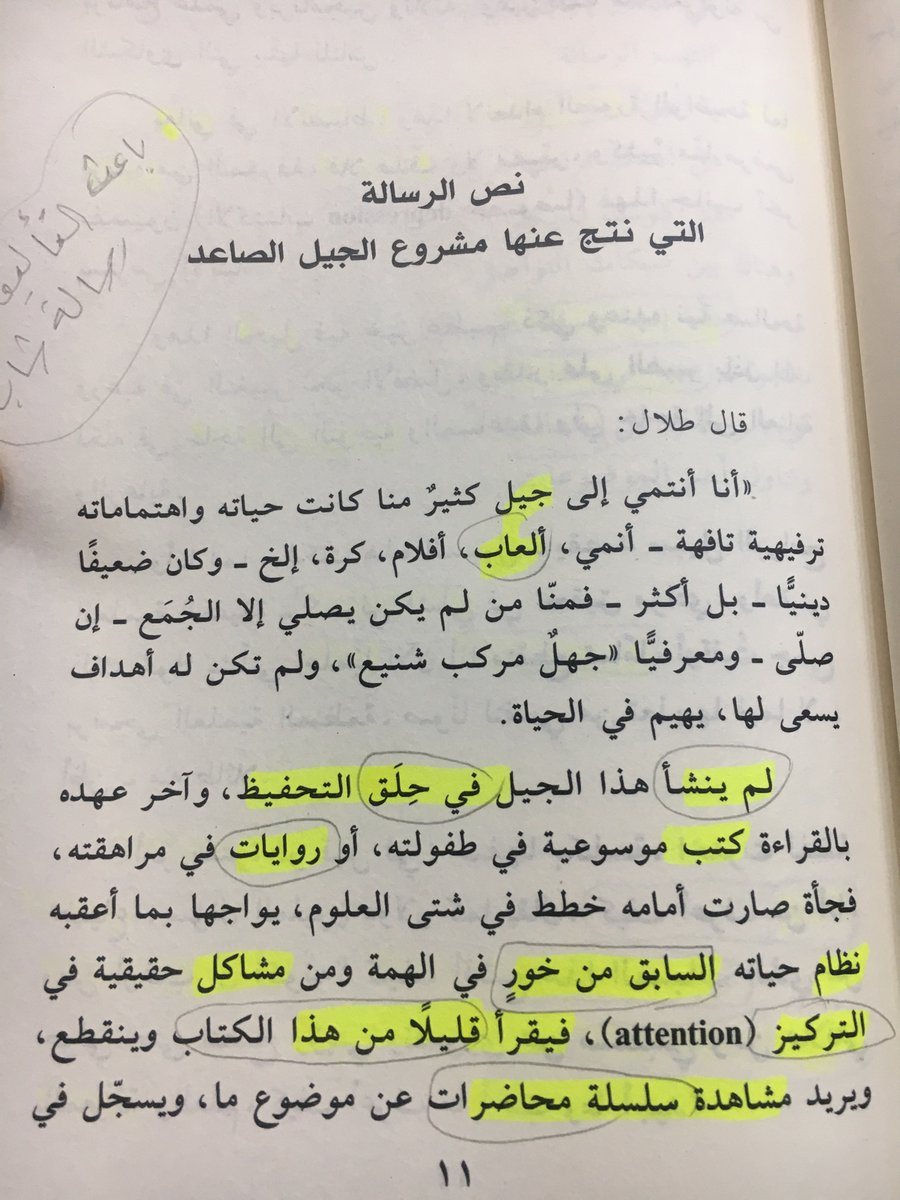 نص الرسالة
التي نتج عنها مشروع الجيل الصاعد
باعث التأليف
رسالة شاب
قال طلال:
«أنا أنتمي إلى جيل كثيرٌ منا كانت حياته واهتماماته
ترفيهية تافهة ـ أنمي، ألعاب، أفلام، كرة، إلخ ـ وكان ضعيفًا
دينيًّا ـ بل أكثر ـ فمنّا من لم يكن يصلي إلا الجُمَع ـ إن
صلّى ـ ومعرفيًّا «جهلٌ مركب شنيع»، ولم تكن له أهداف
يسعى لها، يهيم في الحياة.
لم ينشأ هذا الجيل في حِلَق التحفيظ، وآخر عهده
بالقراءة كتب موسوعية في طفولته، أو روايات في مراهقته،
فجأة صارت أمامه خطط في شتى العلوم، يواجها بما أعقبه
نظام حياته السابق من خورٍ في الهمة ومن مشاكل حقيقية في
التركيز (attention)، فيقرأ قليلًا من هذا الكتاب وينقطع،
ويريد مشاهدة سلسلة محاضرات عن موضوع ما، ويسجّل في
١١